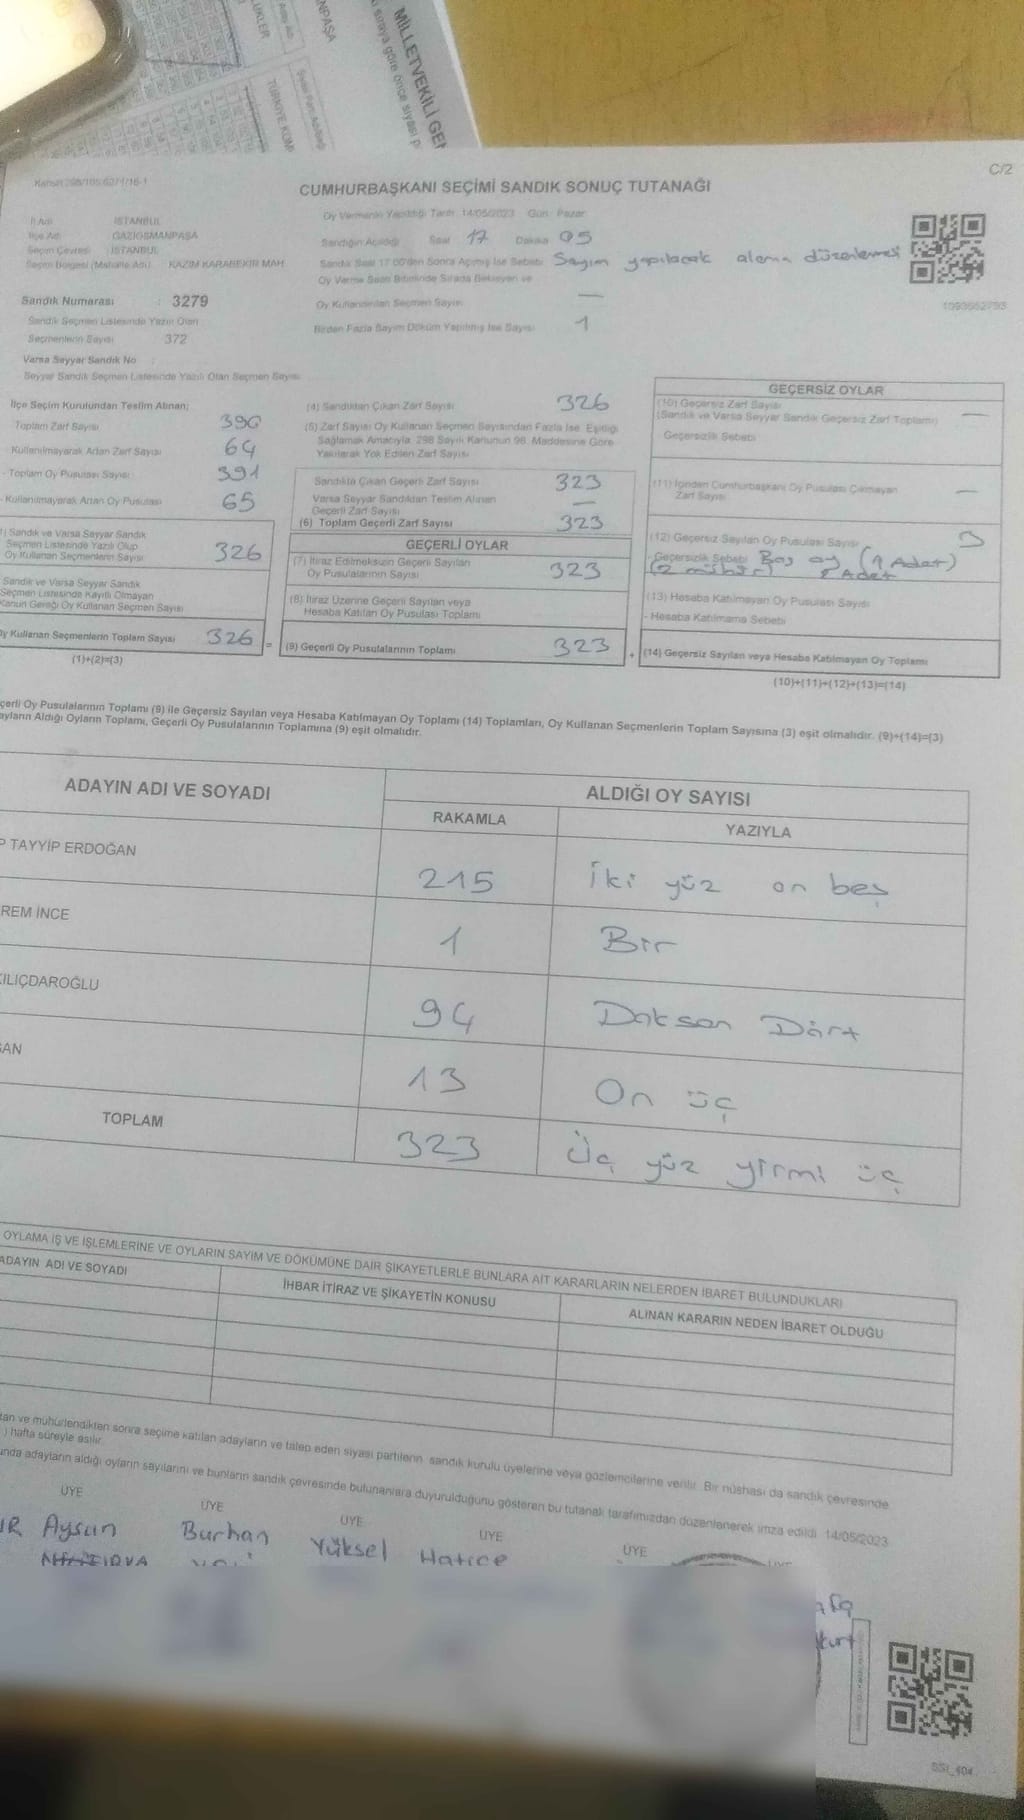 MİLLETVEKİLİ GEN
NPAŞA
C/2
CUMHURBAŞKANI SEÇİMİ SANDIK SONUÇ TUTANAĞI
İl Adı : İSTANBUL
İlçe Adı : GAZİOSMANPAŞA
Seçim Çevresi : İSTANBUL
Seçim Bölgesi (Mahalle Adı) : KAZIM KARABEKİR MAH
Sandık Numarası : 3279
Sandık Seçmen Listesinde Yazılı Olan
Seçmenlerin Sayısı : 372
Varsa Seyyar Sandık No :
Seyyar Sandık Seçmen Listesinde Yazılı Olan Seçmen Sayısı
Oy Vermenin Yapıldığı Tarih: 14/05/2023 Gün: Pazar
Sandığın Açıldığı Saat 17 Dakika 05
Sandık Saat 17.00'den Sonra Açılmış İse Sebebi: Sayım yapılacak alanın düzenlenmesi
Oy Verme Saati Bitiminde Sırada Bekleyen ve
Oy Kullandırılan Seçmen Sayısı —
Birden Fazla Sayım Döküm Yapılmış İse Sayısı 1
1093662793
İlçe Seçim Kurulundan Teslim Alınan;
Toplam Zarf Sayısı 390
- Kullanılmayarak Artan Zarf Sayısı 64
- Toplam Oy Pusulası Sayısı 391
- Kullanılmayarak Artan Oy Pusulası 65
1) Sandık ve Varsa Seyyar Sandık
Seçmen Listesinde Yazılı Olup
Oy Kullanan Seçmenlerin Sayısı 326
Sandık ve Varsa Seyyar Sandık
Seçmen Listesinde Kayıtlı Olmayan
Kanun Gereği Oy Kullanan Seçmen Sayısı
Oy Kullanan Seçmenlerin Toplam Sayısı 326 =
(1)+(2)=(3)
(4) Sandıktan Çıkan Zarf Sayısı 326
(5) Zarf Sayısı Oy Kullanan Seçmen Sayısından Fazla İse, Eşitliği
Sağlamak Amacıyla, 298 Sayılı Kanunun 98. Maddesine Göre
Yakılarak Yok Edilen Zarf Sayısı
Sandıkta Çıkan Geçerli Zarf Sayısı 323
Varsa Seyyar Sandıktan Teslim Alınan
Geçerli Zarf Sayısı —
(6) Toplam Geçerli Zarf Sayısı 323
GEÇERLİ OYLAR
(7) İtiraz Edilmeksizin Geçerli Sayılan
Oy Pusulalarının Sayısı 323
(8) İtiraz Üzerine Geçerli Sayılan veya
Hesaba Katılan Oy Pusulası Toplamı
(9) Geçerli Oy Pusulalarının Toplamı 323 +
GEÇERSİZ OYLAR
(10) Geçersiz Zarf Sayısı —
(Sandık ve Varsa Seyyar Sandık Geçersiz Zarf Toplamı)
Geçersizlik Sebebi
(11) İçinden Cumhurbaşkanı Oy Pusulası Çıkmayan
Zarf Sayısı —
(12) Geçersiz Sayılan Oy Pusulası Sayısı 3
- Geçersizlik Sebebi Boş oy (1 Adet)
(2 mühür) 2 Adet
(13) Hesaba Katılmayan Oy Pusulası Sayısı
- Hesaba Katılmama Sebebi
(14) Geçersiz Sayılan veya Hesaba Katılmayan Oy Toplamı
(10)+(11)+(12)+(13)=(14)
çerli Oy Pusulalarının Toplamı (9) ile Geçersiz Sayılan veya Hesaba Katılmayan Oy Toplamı (14) Toplamları, Oy Kullanan Seçmenlerin Toplam Sayısına (3) eşit olmalıdır. (9)+(14)=(3)
ayların Aldığı Oyların Toplamı, Geçerli Oy Pusulalarının Toplamına (9) eşit olmalıdır.
ADAYIN ADI VE SOYADI
ALDIĞI OY SAYISI
RAKAMLA YAZIYLA
P TAYYİP ERDOĞAN 215 İki yüz on beş
REM İNCE 1 Bir
KILIÇDAROĞLU 94 Doksan Dört
ĞAN 13 On üç
TOPLAM 323 Üç yüz yirmi üç
OYLAMA İŞ VE İŞLEMLERİNE VE OYLARIN SAYIM VE DÖKÜMÜNE DAİR ŞİKAYETLERLE BUNLARA AİT KARARLARIN NELERDEN İBARET BULUNDUKLARI
ADAYIN ADI VE SOYADI
İHBAR İTİRAZ VE ŞİKAYETİN KONUSU
ALINAN KARARIN NEDEN İBARET OLDUĞU
tan ve mühürlendikten sonra seçime katılan adayların ve talep eden siyasi partilerin sandık kurulu üyelerine veya gözlemcilerine verilir. Bir nüshası da sandık çevresinde
) hafta süreyle asılır.
unda adayların aldığı oyların sayılarını ve bunların sandık çevresinde bulunanlara duyurulduğunu gösteren bu tutanak tarafımızdan düzenlenerek imza edildi. 14/05/2023
ÜYE ÜYE ÜYE ÜYE ÜYE ÜYE
Aysun Burhan Yüksel Hatice